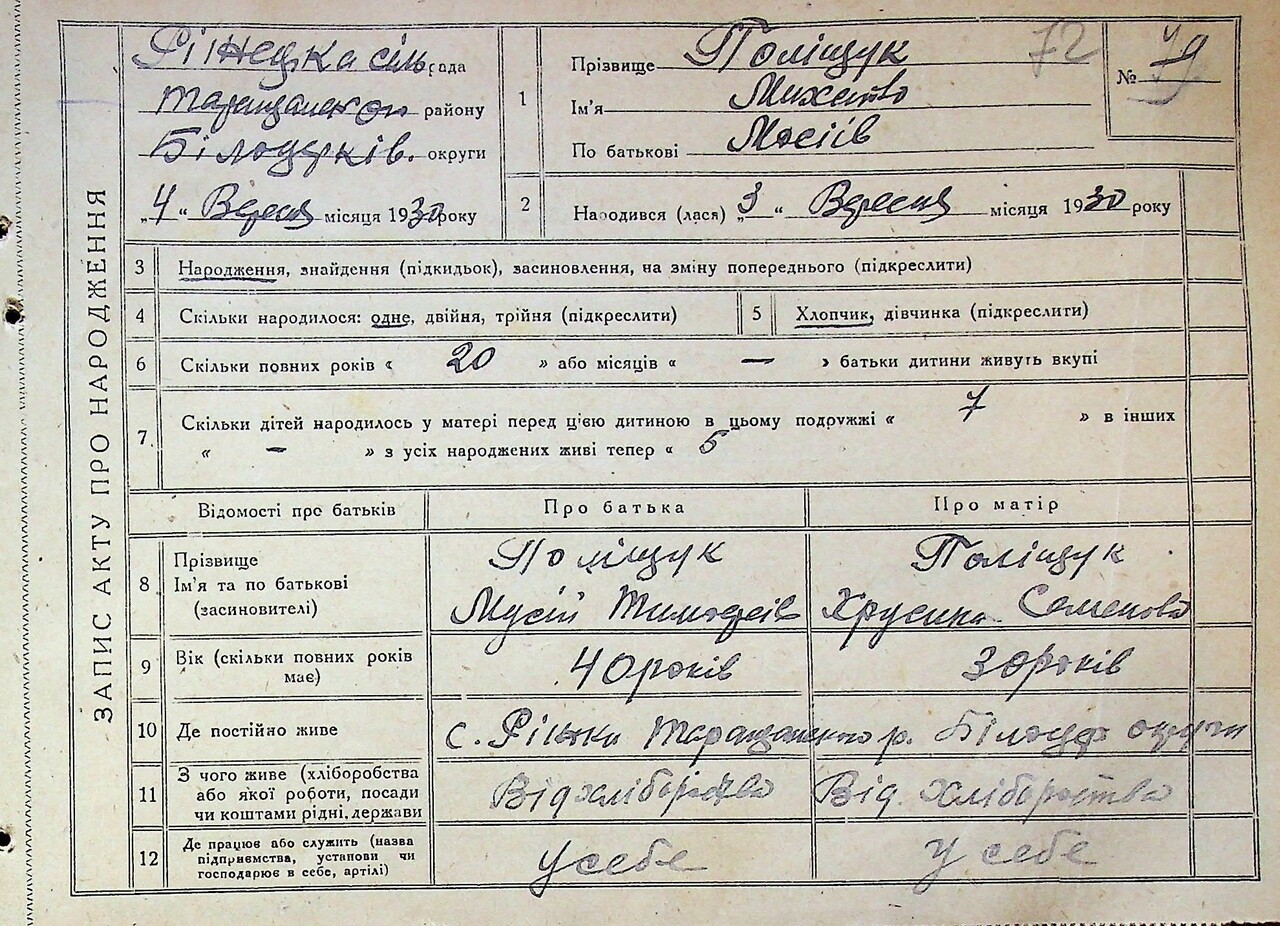 ЗАПИС АКТУ ПРО НАРОДЖЕННЯ
сіль рада
Таращанськ району
Білоцерків. округи
„4“ Вересня місяця 1930 року
1
Прізвище Поліщук
Ім'я Михайло
По батькові Мосіів
72
№ 79
2
Народився (лася) „3“ Вересня місяця 1930 року
3 Народження, знайдення (підкидьок), засиновлення, на зміну попереднього (підкреслити)
4 Скільки народилося: одне, двійня, трійня (підкреслити)
5 Хлопчик, дівчинка (підкреслити)
6 Скільки повних років « 20 » або місяців « — » батьки дитини живуть вкупі
7. Скільки дітей народилось у матері перед ц'єю дитиною в цьому подружжі « 7 » в інших
« — » з усіх народжених живі тепер « 5
Відомості про батьків Про батька Про матір
8 Прізвище
Ім'я та по батькові
(засиновителі)
Поліщук
Мусій Тимофеів
Поліщук
Хрусина Семенова
9 Вік (скільки повних років
має)
40 років
30 років
10 Де постійно живе
с. Рільки Таращанського р. Білоцер округи
11 З чого живе (хліборобства
або якої роботи, посади
чи коштами рідні, держави
Від хліборобства
Від хліборобства
12 Де працює або служить (назва
підприємства, установи чи
господарює в себе, артілі)
У себе
У себе